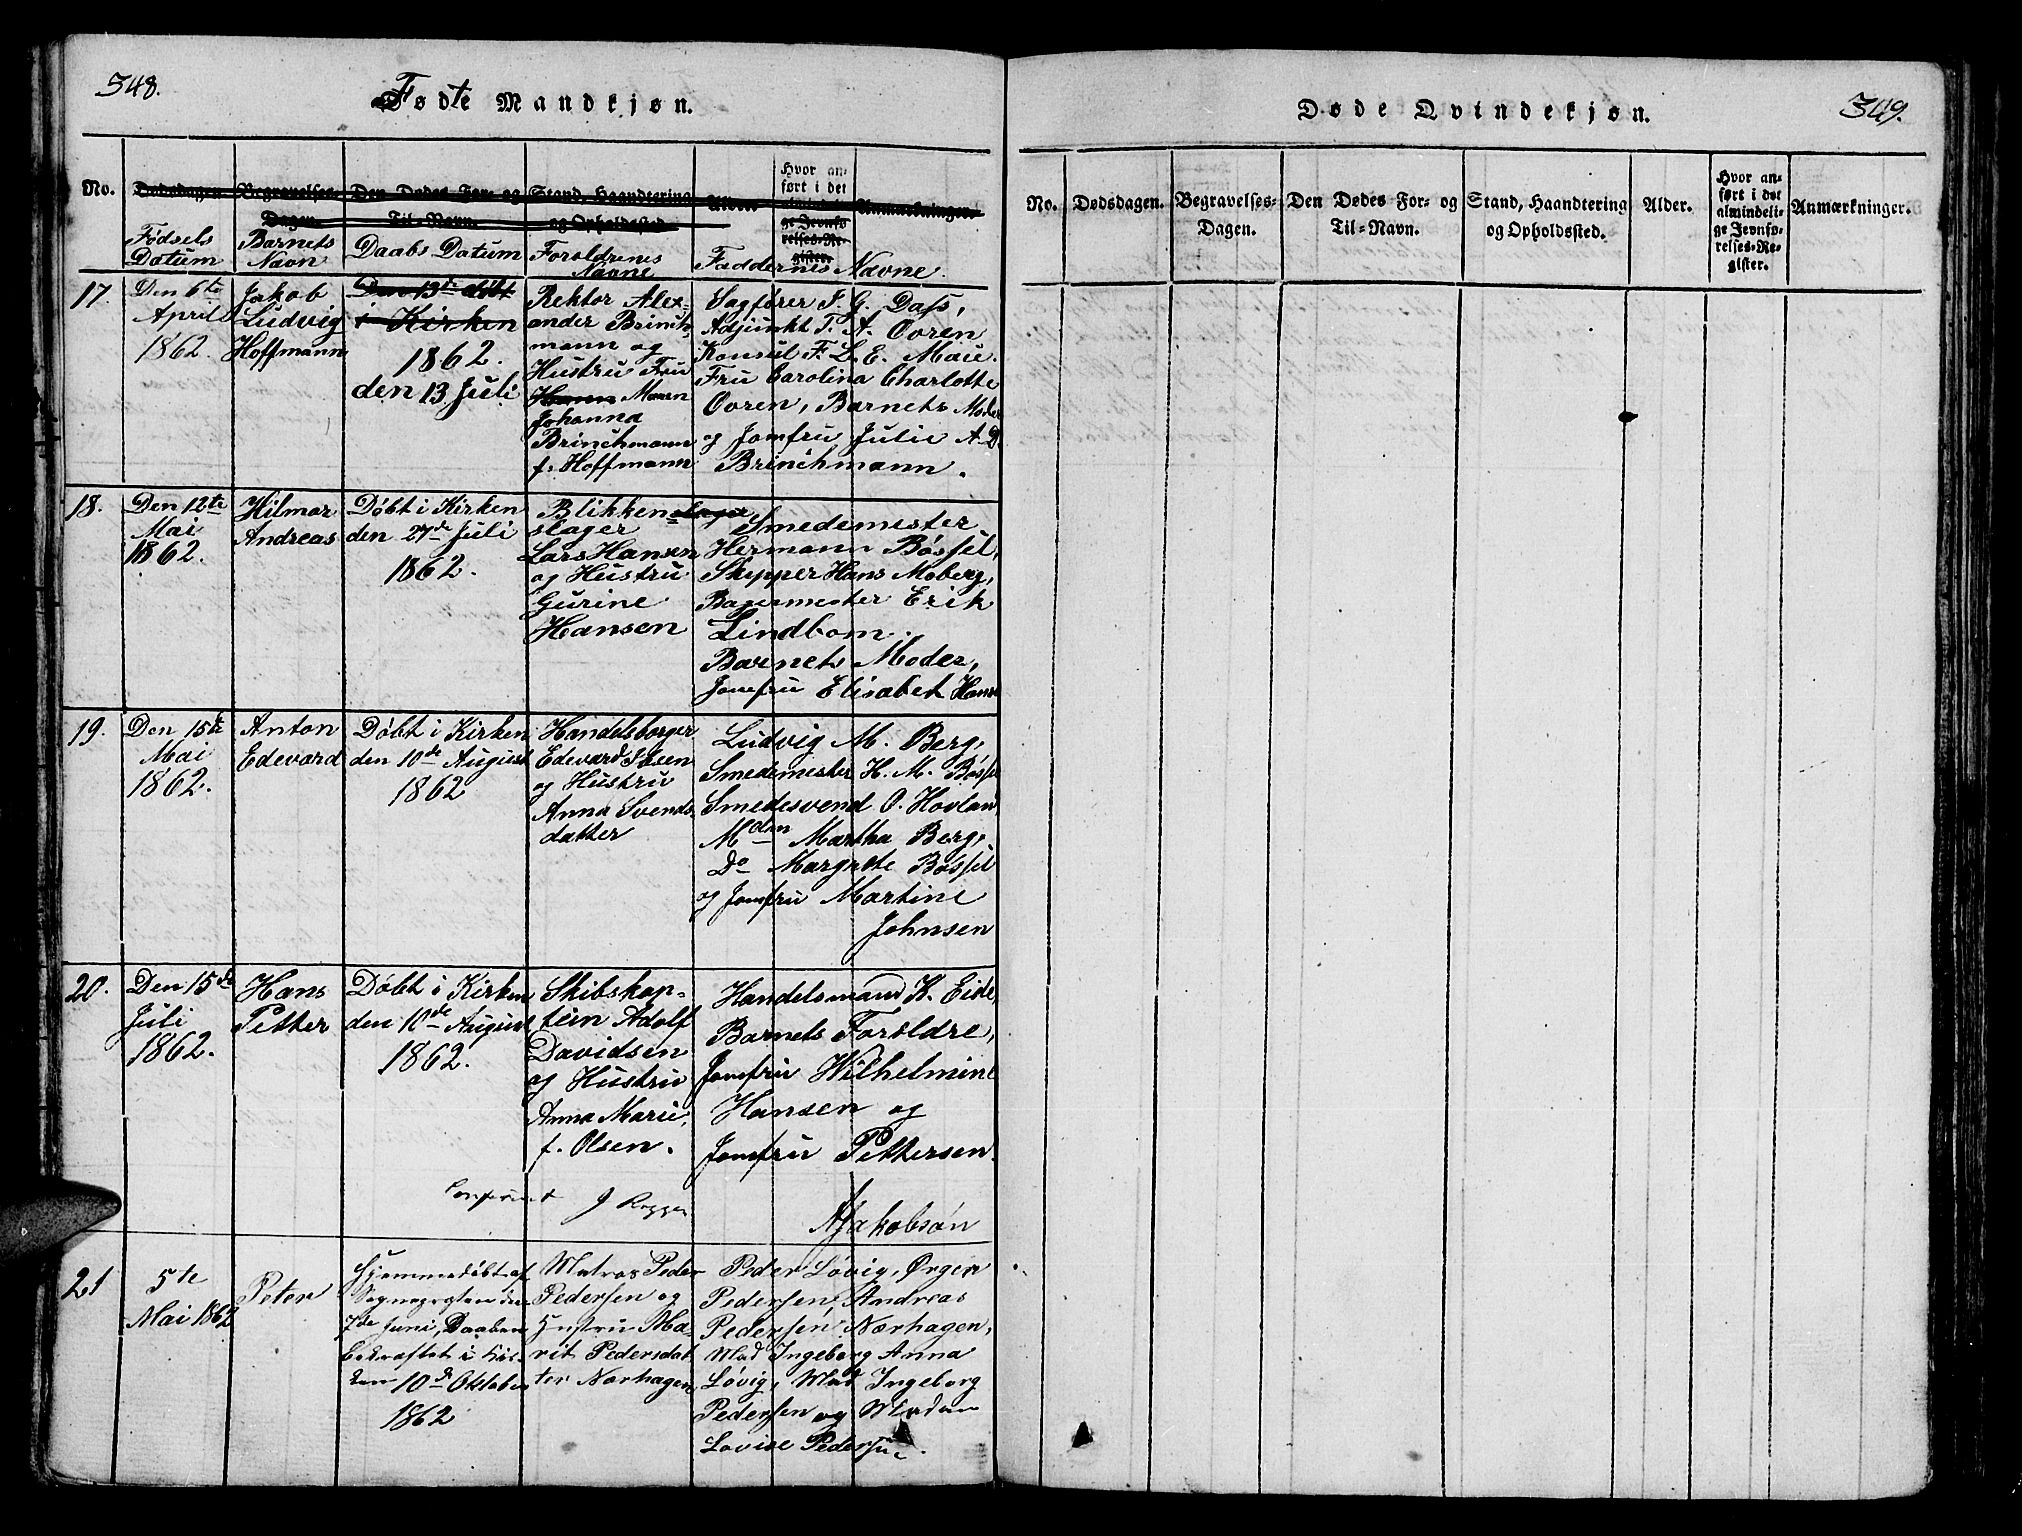 348.
Fødte Mandkjøn.
No.
Dødsdagen.
Begravelses-
Dagen.
Den Dødes For- og
Til-Navn.
Stand, Haandtering
og Opholdssted.
Alder.
Hvor an-
ført i det
almindeli-
ge Jevnfø-
relses-Re-
gister.
Anmærkninger.
Fødsels
Datum
Barnets
Navn
Daabs Datum
Forældrenes
Navne
Faddernes Navne.
17.
Den 6te
April
1862.
Jakob
Ludvig
Hoffmann
Den 13de døbt
i Kirken
1862.
den 13 Juli
Rektor Alex-
ander Brinch-
mann og
Hustru Fru
Hann Maren
Johanna
Brinchmann
f. Hoffmann
Sagfører J. G. Dass,
Adjunkt T. A. Ovren
Konsul F. L. E. Maie.
Fru Carolina Charlotte
Ovren, Barnets Moder
og Jomfru Julie A. D.
Brinchmann.
18.
Den 12te
Mai
1862.
Hilmar
Andreas
Døbt i Kirken
den 27de Juli
1862.
Blikken=slager
slager
Lars Hansen
og Hustru
Gurine
Hansen
Smedemester
Hermann Bössel,
Skipper Hans Moberg,
Bagermester Erik
Lindbom.
Barnets Moder,
Jomfru Elisabet Hans
19.
Den 15de
Mai
1862.
Anton
Edevard
Døbt i Kirken
den 10de August
1862
Handelsborger
Edevard Ibsen
og Hustru
Anna Svends
datter
Ludvig M. Berg,
Smedemester H. M. Bössel
Smedesvend O. Hovlan
Mdm Martha Berg,
Do Margrete Bössel
og Jomfru Martine
Johnsen
20.
Den 15de
Juli
1862.
Hans
Petter
Døbt i Kirken
den 10de August
1862.
Skibskap-
tein Adolf
Davidsen
og Hustru
Anna Marie,
f. Olsen.
Handelsmand K. Eide,
Barnets Forældre,
Jomfru Wilhelmine
Hansen og
Jomfru Pettersen.
Confereret
J
Jakobson
21
5te
Mai 1862
Peter
Hjemmedøbt af
Sognepresten den
7de Juni, Daaben
bekræftet i Kir-
ken 10de Oktober
1862
Matros Peder
Pedersen og
Hustru Ma-
rit Pedersdat
ter Nærhagen
Peder Løvig, Ørgen
Pedersen, Andreas
Pedersen Nærhagen,
Mad Ingeborg Anna
Løvig, Mad Ingeborg
Pedersen og Madam
Lovise Pedersen.
Døde Qvindekjøn.
349.
No.
Dødsdagen.
Begravelses-
Dagen.
Den Dødes For- og
Til-Navn.
Stand, Haandtering
og Opholdssted.
Alder.
Hvor an-
ført i det
almindeli-
ge Jevnfø-
relses-Re-
gister.
Anmærkninger.